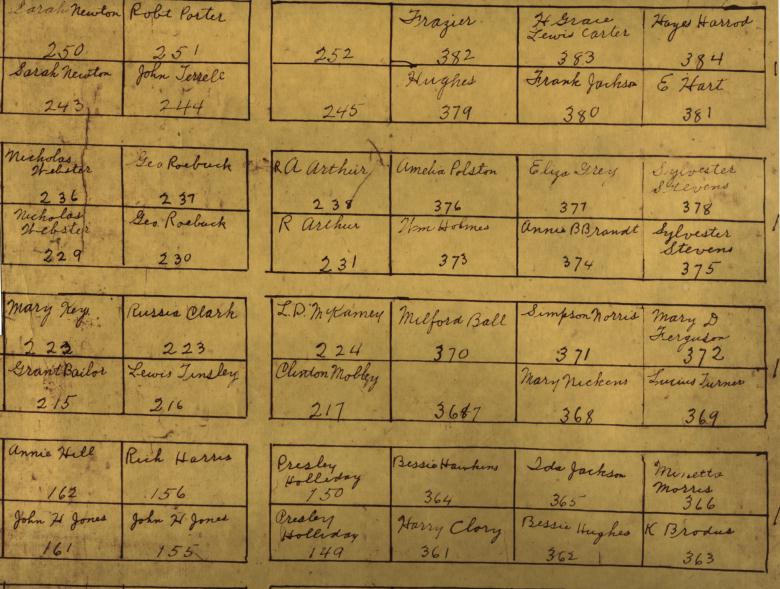 Sarah Newton
250
Robt Porter
251
252
Frazier
382
H Grace
Lewis Carter
383
Hayes Harrod
384
Sarah Newton
243
John Terrell
244
245
Hughes
379
Frank Jackson
380
E Hart
381
Nicholas
Webster
236
Geo Roebuck
237
R A Arthur
238
Amelia Polston
376
Eliza Grey
377
Sylvester
Stevens
378
Nicholas
Webster
229
Geo Roebuck
230
R Arthur
231
Wm Holmes
373
Annie B Brandt
374
Sylvester
Stevens
375
Mary Key
222
Russia Clark
223
L.D. McKamey
224
Milford Ball
370
Simpson Norris
371
Mary D
Ferguson
372
Grant Bailor
215
Lewis Tinsley
216
Clinton Mobley
217
367
Mary Nickens
368
Lucius Turner
369
Annie Hill
162
Rich Harris
156
Presley
Holliday
150
Bessie Hawkins
364
Ida Jackson
365
Minetta
Morris
366
John H Jones
161
John H Jones
155
Presley
Holliday
149
Harry Clory
361
Bessie Hughes
362
K Brodus
363